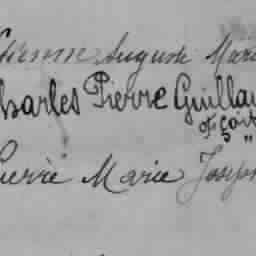 Etienne Auguste Mari
Charles Pierre Guillau
Pierre Marie Joseph